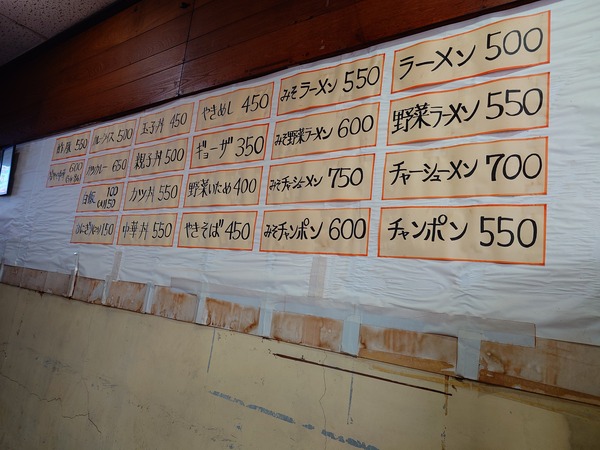 ラーメン 500
野菜ラーメン 550
チャーシューメン 700
チャンポン 550
みそラーメン 550
みそ野菜ラーメン 600
みそチャーシューメン 750
みそチャンポン 600
やきめし 450
ギョーザ 350
野菜いため 400
やきそば 450
玉子丼 450
親子丼 500
カツ丼 550
中華丼 550
カレーライス 500
カツカレー 650
白飯 100
150
おにぎり 150
酢豚 550
600